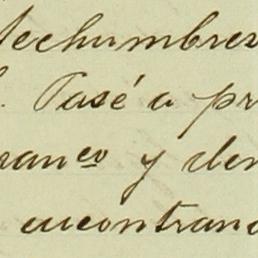 techumbres
. Pasé a pr
ran<sup>co</sup> y den
encontrand